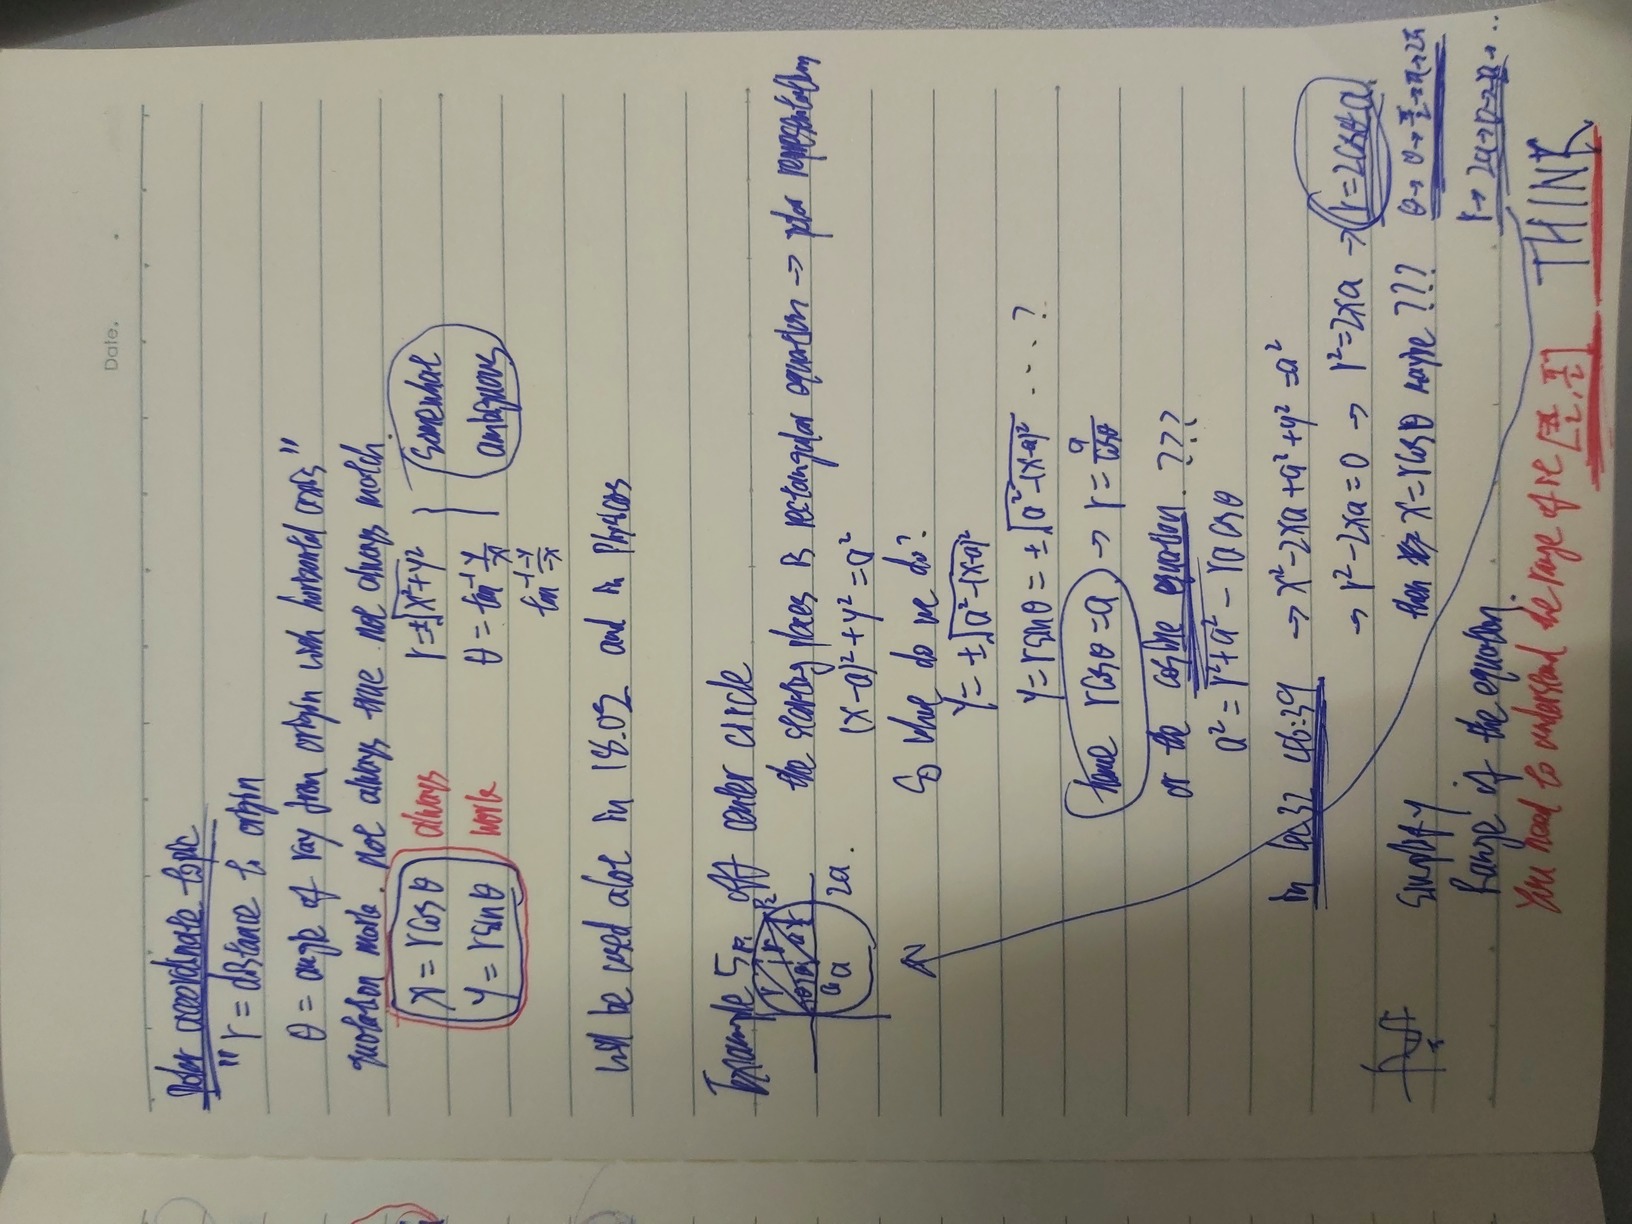 Date.
Polar acoordinate topic
"r = distance to origin
θ = angle of ray from origin with horizontal axis"
quotation mark. not always true not always match.
x = r cos θ always r = ±√x²+y² somewhat
y = r sin θ work θ = tan⁻¹ y/x ambiguous
tan⁻¹ -y/-x
will be used alot in 18.02 and in Physics
Example 5 off center circle
P₁ P₂ r r θ θ a
a a 2a.
the starting places is rectangular equation → polar representation
(x-a)² + y² = a²
So what do we do?
y = ±√a²-(x-a)²
y = r sin θ = ±√a²-(x-a)² ....?
r cos θ = a → r = a/cosθ
or the cosine equation. ???
a² = r² + a² - ra cos θ
in lec 32 46:39 → x² - 2xa + a² + y² = a²
→ r² - 2xa = 0 → r² = 2xa → r = 2cosθ a
simplify then x = r cos θ maybe ??? θ → 0 → π/2 → π → 2π
Range of the equation. r → 2a → 0 → -2a → ..
You need to understand the range of it [-π/2, π/2] THINK